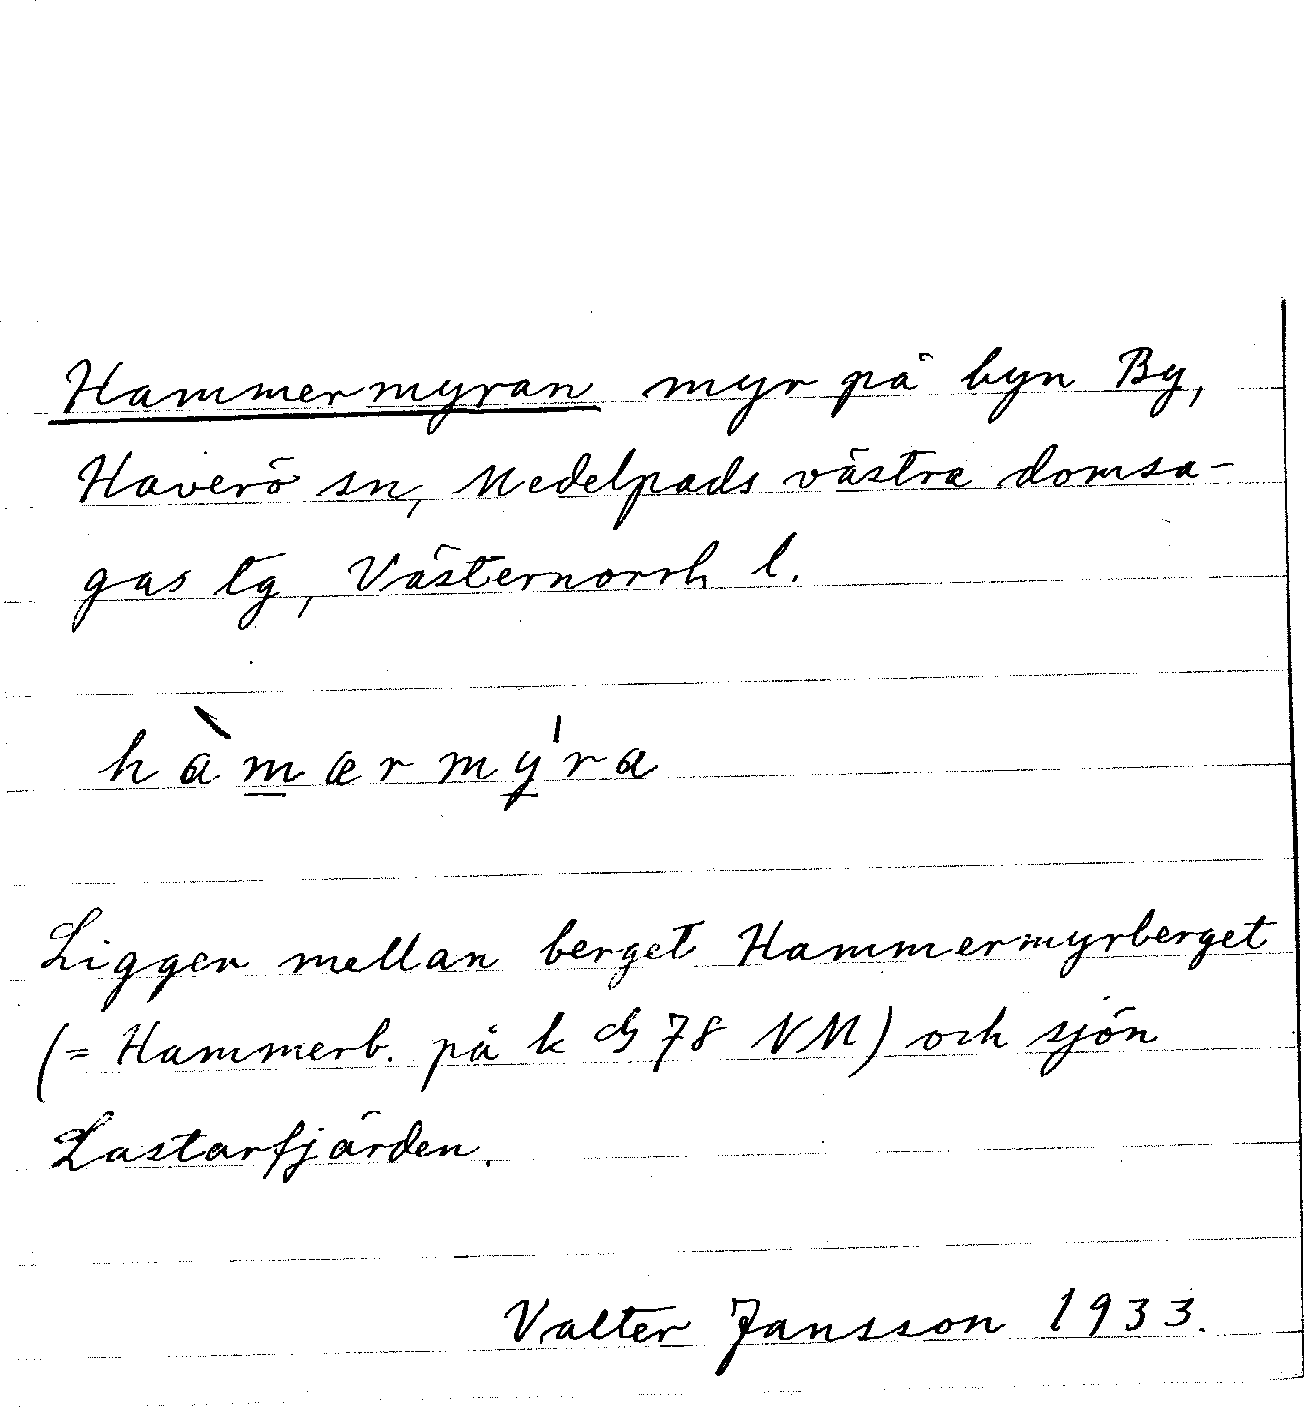 Hammermyran myr på byn By,
Haverö sn, Medelpads västra domsa-
gas tg, Västernorrl l.
hàmærmýra
Ligger mellan berget Hammermyrberget
(= Hammerb. på k 78 NM) och sjön
Lastarfjärden.
Valter Jansson 1933.